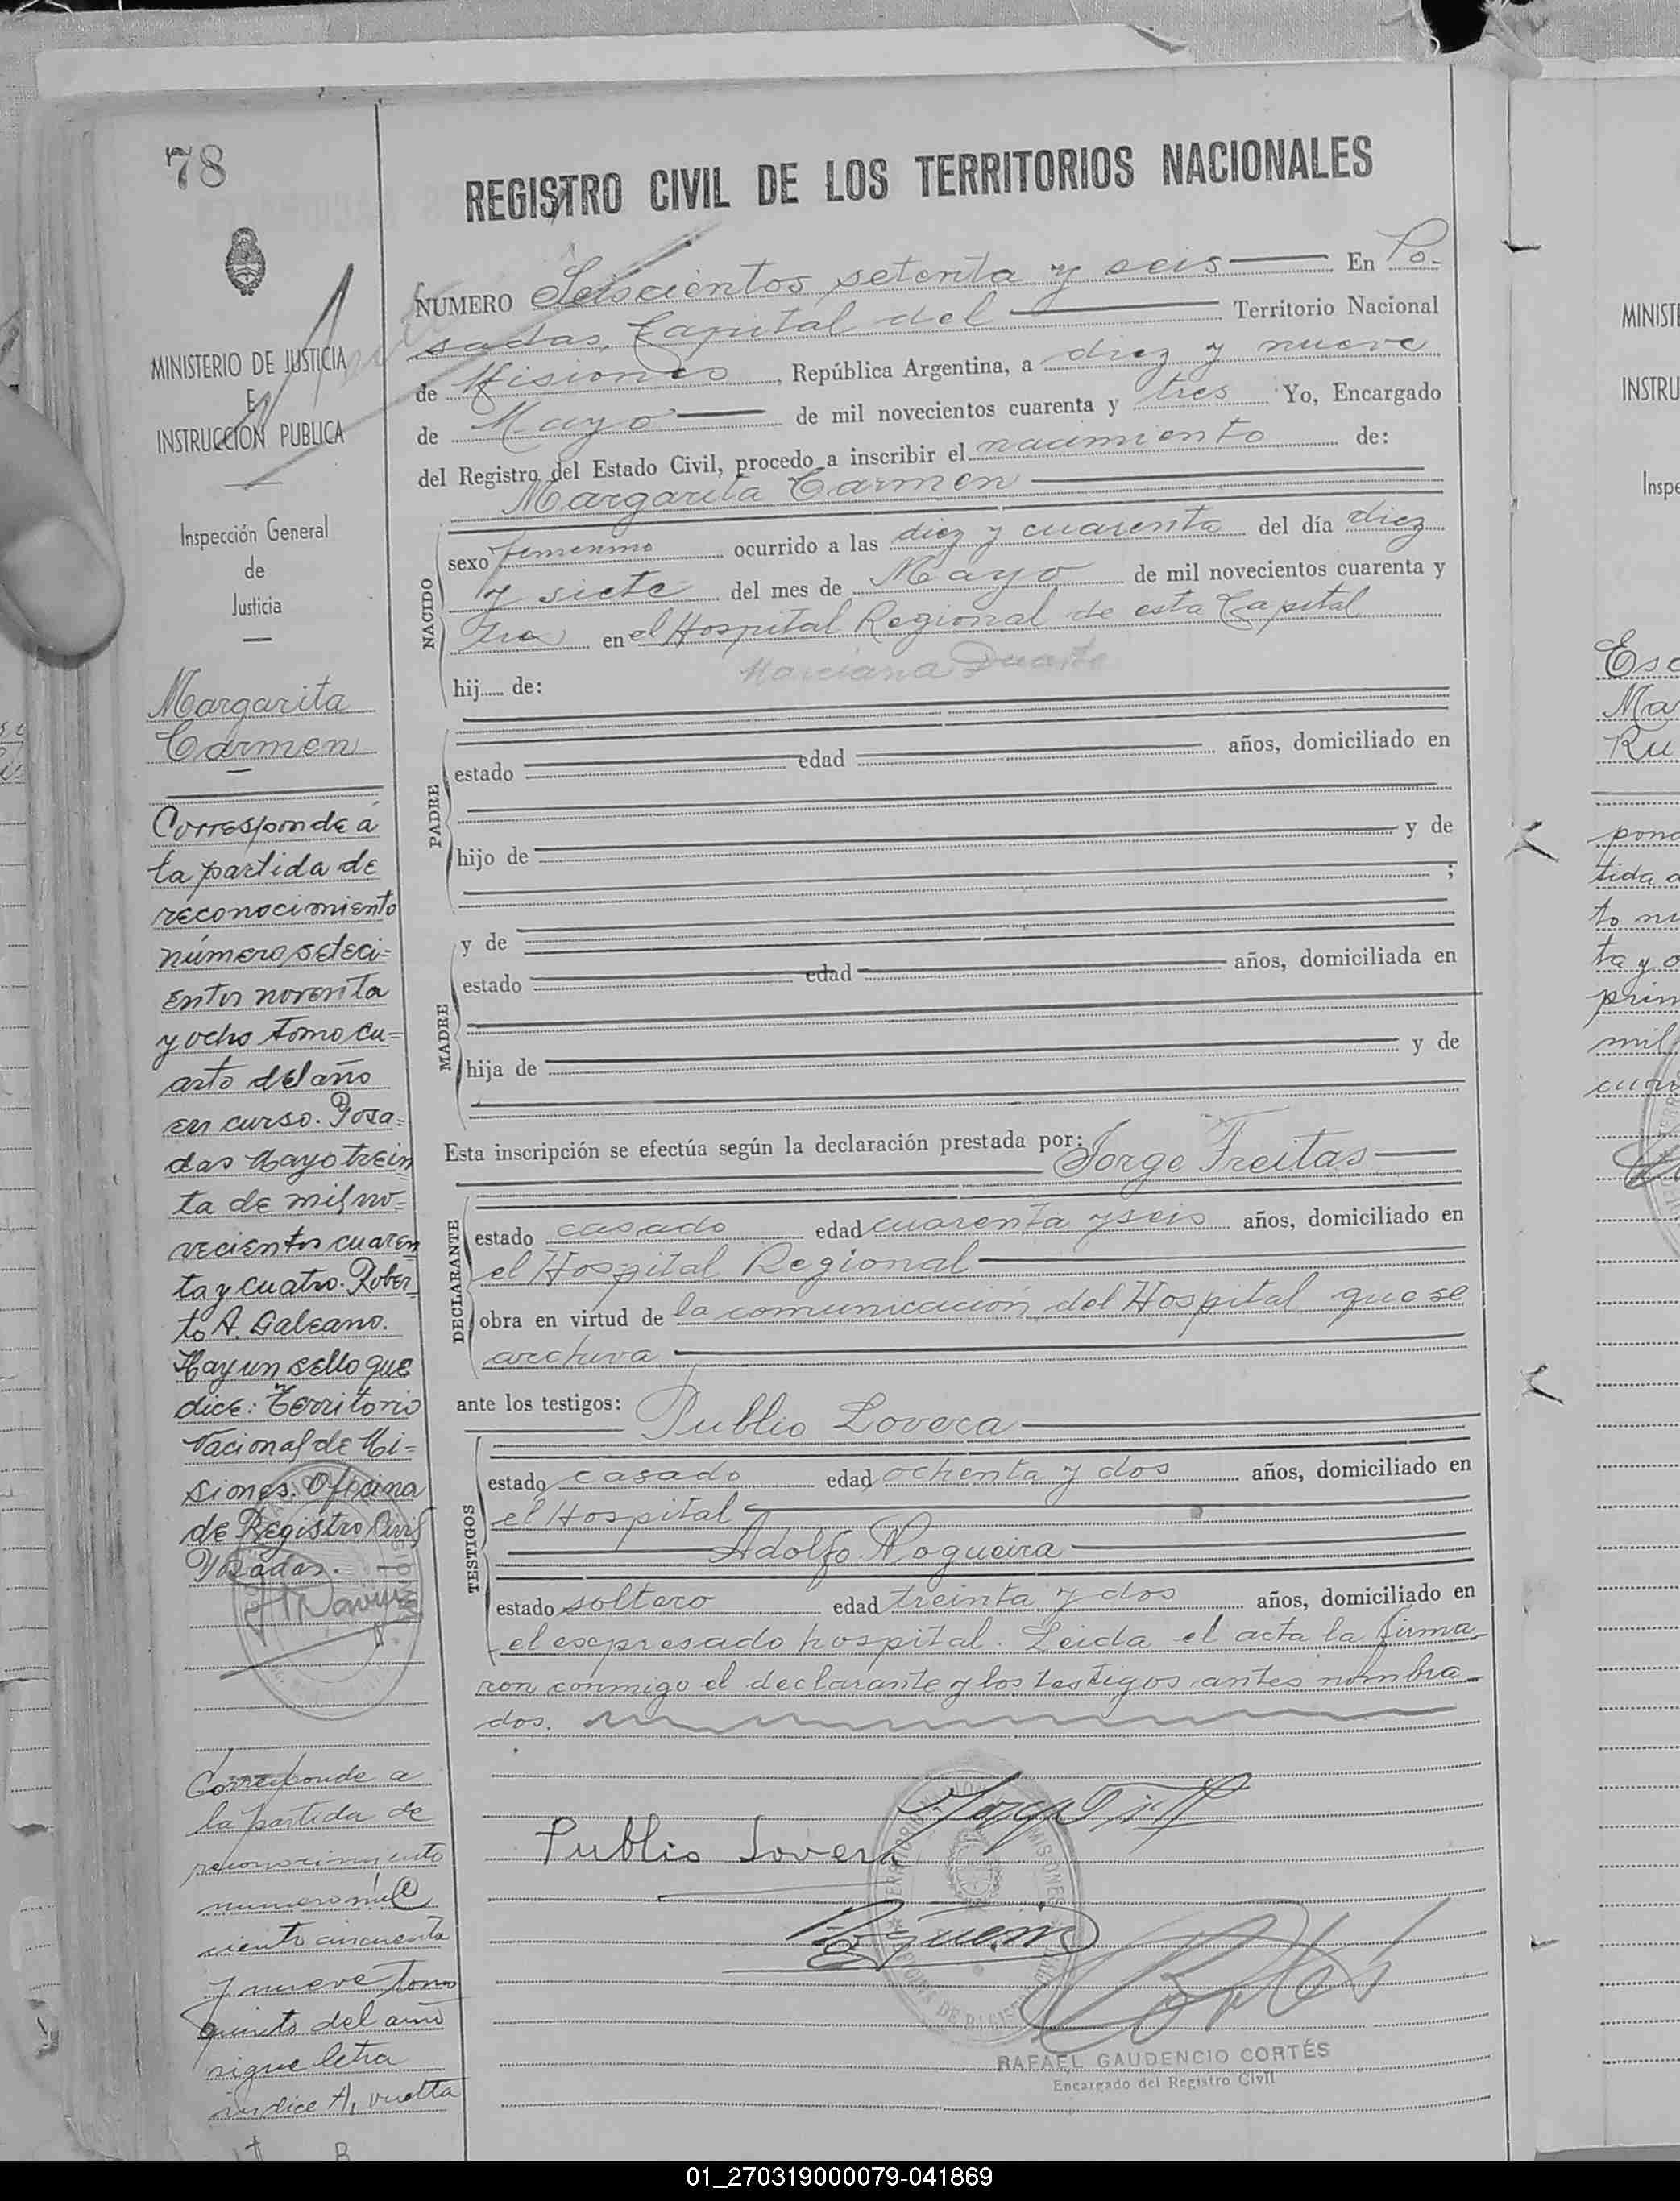 78
REGISTRO CIVIL DE LOS TERRITORIOS NACIONALES
MINISTERIO DE JUSTICIA
E
INSTRUCCIÓN PUBLICA
Inspección General
de
Justicia
Margarita
Carmen
Corresponde á
la partida de
reconocimiento
número seteci=
entos noventa
y ocho tomo cu=
arto del año
en curso. Posa=
das Mayo trein
ta de mil no=
vecientos cuaren
ta y cuatro. Rober_
to A. Galeano.
Hay un sello que
dice: Territorio
Nacional de Mi=
siones. Oficina
de Registro Civil
Posadas.
Corresponde a
la partida de
reconocimiento
numero mil
ciento cincuenta
y nueve tomo
quinto del año
sigue letra
indice A, vuelta
NUMERO Seiscientos setenta y seis En Po-
sadas, Capital del Territorio Nacional
de Misiones, República Argentina, a diez y nueve
de Mayo de mil novecientos cuarenta y tres Yo, Encargado
del Registro del Estado Civil, procedo a inscribir el nacimiento de:
Margarita Carmen
NACIDO
sexo femenino ocurrido a las diez y cuarenta del día diez
y siete del mes de Mayo de mil novecientos cuarenta y
tres en el Hospital Regional de esta Capital
Marciana Duarte
hij...... de:
PADRE
estado edad años, domiciliado en
hijo de y de
;
MADRE
y de
estado edad años, domiciliada en
hija de y de
Esta inscripción se efectúa según la declaración prestada por: Jorge Freitas
DECLARANTE
estado casado edad cuarenta y seis años, domiciliado en
el Hospital Regional
obra en virtud de la comunicación del Hospital que se
archiva
ante los testigos: Publio Lovera
TESTIGOS
estado casado edad ochenta y dos años, domiciliado en
el Hospital
Adolfo Nogueira
estado soltero edad treinta y dos años, domiciliado en
el expresado hospital. Leida el acta la firma_
ron conmigo el declarante y los testigos antes nombra_
dos.
Publio Lovera
RAFAEL GAUDENCIO CORTÉS
Encargado del Registro Civil
MINISTE
INSTRU
Inspe
Ma
Ru
pond
tida d
to nu
ta y o
prim
mil
cuar
01_270319000079-041869